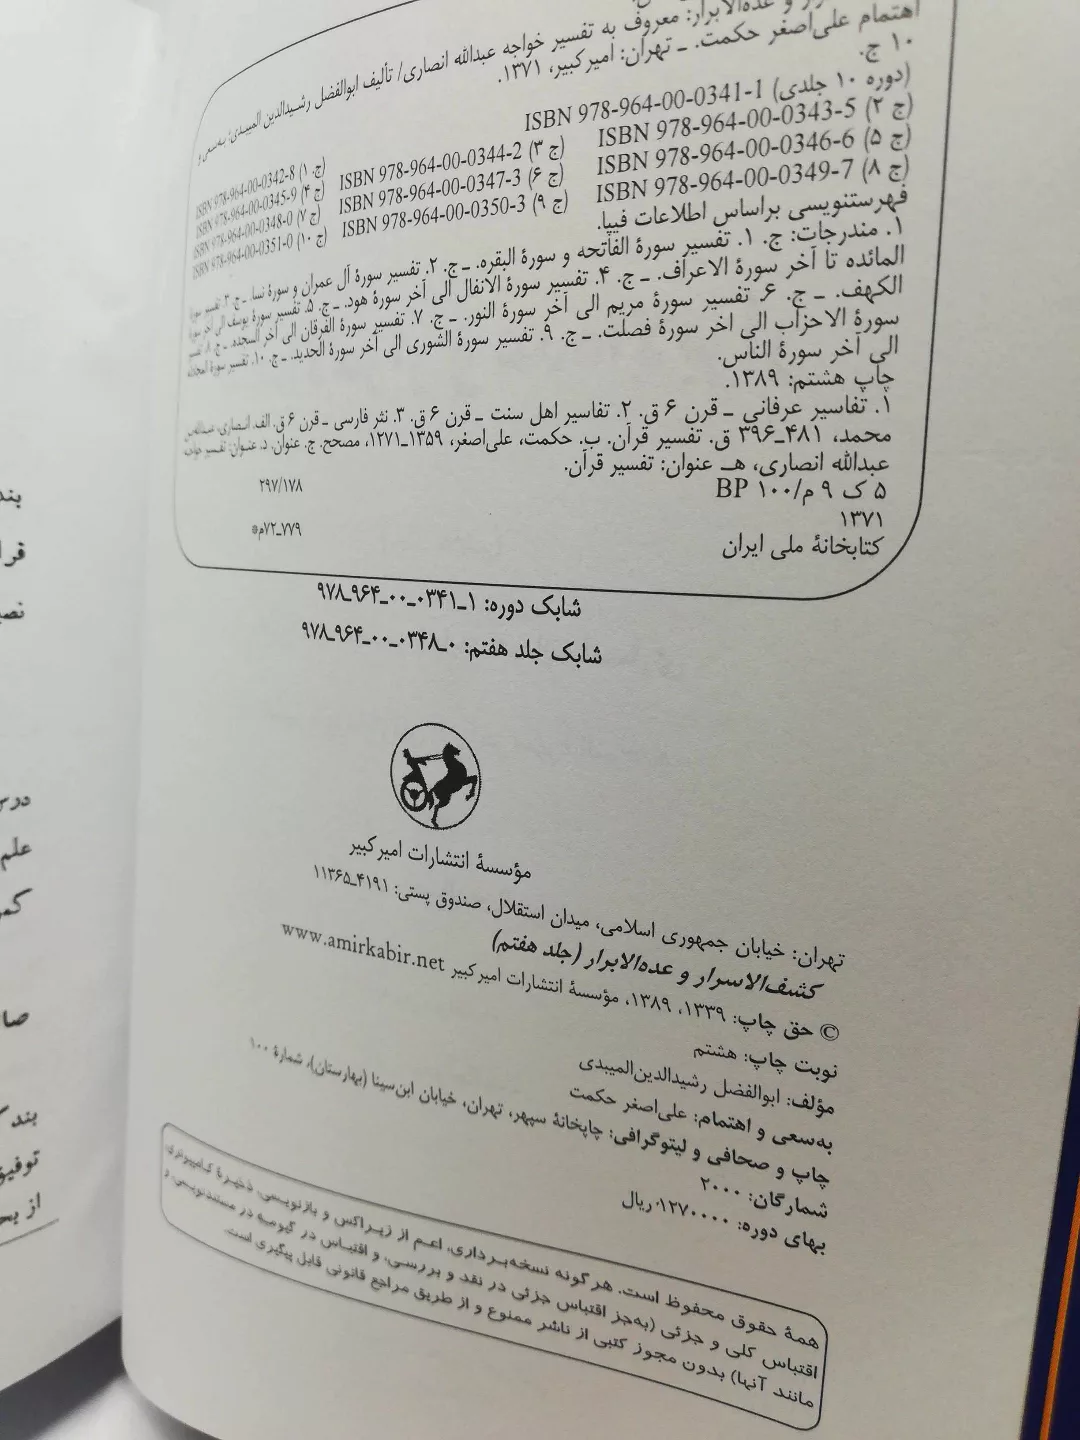 و عده‌الابرار: معروف به تفسیر خواجه عبدالله انصاری/ تألیف ابوالفضل رشیدالدین المیبدی؛ به‌سعی و
اهتمام علی‌اصغر حکمت. ـ تهران: امیرکبیر، ۱۳۷۱.
۱۰ ج.
(دوره ۱۰ جلدی) ISBN 978-964-00-0341-1
(ج ۲) ISBN 978-964-00-0343-5 (ج ۳) ISBN 978-964-00-0344-2 (ج. ۱) ISBN 978-964-00-0342-8
(ج ۵) ISBN 978-964-00-0346-6 (ج ۶) ISBN 978-964-00-0347-3 (ج ۴) ISBN 978-964-00-0345-9
(ج ۸) ISBN 978-964-00-0349-7 (ج ۹) ISBN 978-964-00-0350-3 (ج ۷) ISBN 978-964-00-0348-0
(ج ۱۰) ISBN 978-964-00-0351-0
فهرستنویسی براساس اطلاعات فیپا.
۱. مندرجات: ج. ۱. تفسیر سورهٔ الفاتحه و سورهٔ البقره. ـ ج. ۲. تفسیر سورهٔ آل عمران و سورهٔ نسا. ـ ج. ۳. تفسیر سورهٔ
المائده تا آخر سورهٔ الاعراف. ـ ج. ۴. تفسیر سورهٔ الانفال الی آخر سورهٔ هود. ـ ج. ۵. تفسیر سورهٔ یوسف الی آخر سورهٔ
الکهف. ـ ج. ۶. تفسیر سورهٔ مریم الی آخر سورهٔ النور. ـ ج. ۷. تفسیر سورهٔ الفرقان الی آخر السجده. ـ ج. ۸. تفسیر
سورهٔ الاحزاب الی اخر سورهٔ فصلت. ـ ج. ۹. تفسیر سورهٔ الشوری الی آخر سورهٔ الحدید. ـ ج. ۱۰. تفسیر سورهٔ المجادله
الی آخر سورهٔ الناس.
چاپ هشتم: ۱۳۸۹.
۱. تفاسیر عرفانی ـ قرن ۶ ق. ۲. تفاسیر اهل سنت ـ قرن ۶ ق. ۳. نثر فارسی ـ قرن ۶ ق. الف. انصاری، عبدالله‌بن
محمد، ۴۸۱ـ۳۹۶ ق. تفسیر قرآن. ب. حکمت، علی‌اصغر، ۱۳۵۹ـ۱۲۷۱، مصحح. ج. عنوان. د. عنوان: تفسیر خواجه
عبدالله انصاری، هـ عنوان: تفسیر قرآن.
۵ ک ۹ م/ ۱۰۰ BP ۲۹۷/۱۷۸
۱۳۷۱
کتابخانهٔ ملی ایران ۷۷۹ـ۷۲م*
شابک دوره: ۱ـ۰۳۴۱ـ۰۰ـ۹۶۴ـ۹۷۸
شابک جلد هفتم: ۰ـ۰۳۴۸ـ۰۰ـ۹۶۴ـ۹۷۸
مؤسسهٔ انتشارات امیرکبیر
تهران: خیابان جمهوری اسلامی، میدان استقلال، صندوق پستی: ۴۱۹۱ـ۱۱۳۶۵
کشف‌الاسرار و عده‌الابرار (جلد هفتم)
© حق چاپ: ۱۳۳۹، ۱۳۸۹، مؤسسهٔ انتشارات امیرکبیر www.amirkabir.net
نوبت چاپ: هشتم
مؤلف: ابوالفضل رشیدالدین‌المیبدی
به‌سعی و اهتمام: علی‌اصغر حکمت
چاپ و صحافی و لیتوگرافی: چاپخانهٔ سپهر، تهران، خیابان ابن‌سینا (بهارستان)، شمارهٔ ۱۰۰
شمارگان: ۲۰۰۰
بهای دوره: ۱۲۷۰۰۰۰ ریال
همهٔ حقوق محفوظ است. هرگونه نسخه‌برداری، اعم از زیراکس و بازنویسی، ذخیرهٔ کامپیوتری،
اقتباس کلی و جزئی (به‌جز اقتباس جزئی در نقد و بررسی، و اقتباس در گیومه در مستندنویسی، و
مانند آنها) بدون مجوز کتبی از ناشر ممنوع و از طریق مراجع قانونی قابل پیگیری است.
علم
توفیق
از بح